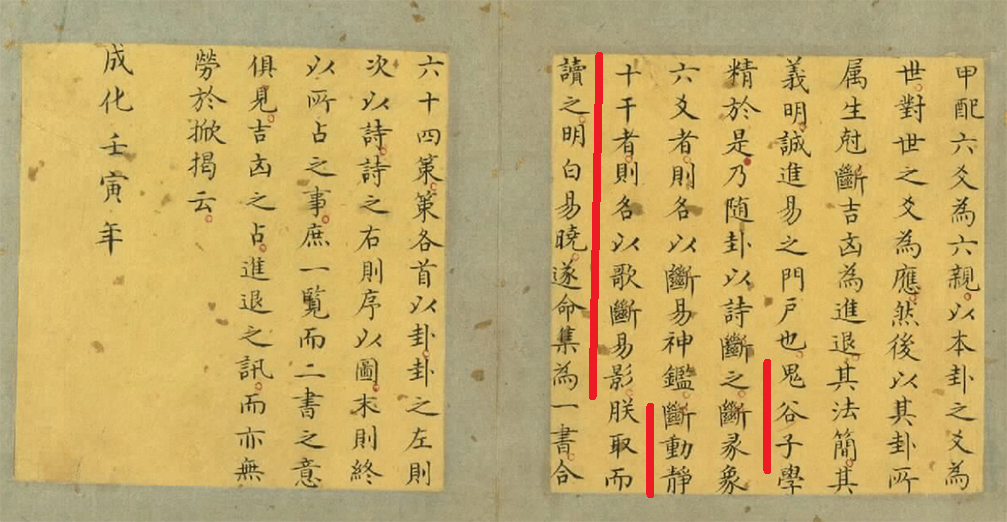 甲配六爻為六親。以本卦之爻為
世。對世之爻為應。然後以其卦所
属生尅斷吉凶為進退。其法簡。其
義明。誠進易之門戸也。鬼谷子學
精於是。乃隨卦以詩斷之。斷彖象
六爻者。則名以斷易神鑑。斷動静
十干者。則名以歌斷易影朕取而
讀之。明白易曉。遂命集為一書。合
六十四策。策各首以卦。卦之左則
次以詩。詩之右則序以圖。末則終
以所占之事。庶一覧而二書之意
俱見。吉凶之占。進退之訊。而亦無
勞於掀揭云。
成化壬寅年